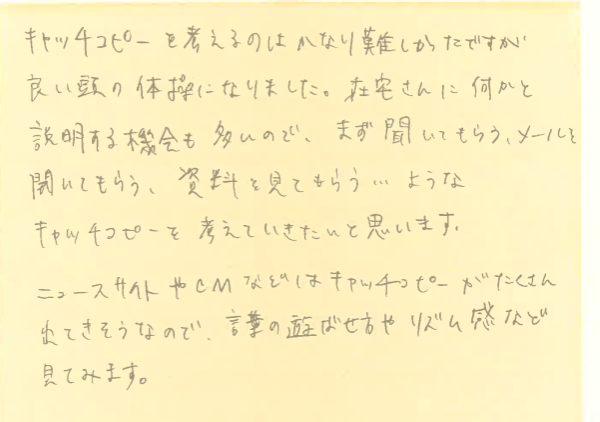 キャッチコピーを考えるのはかなり難しかったですが
良い頭の体操になりました。在宅さんに何かと
説明する機会も多いので、まず聞いてもらう、メールを
開いてもらう、資料を見てもらう…ような
キャッチコピーを考えていきたいと思います。
ニュースサイトやCMなどはキャッチコピーがたくさん
出てきそうなので、言葉の遊ばせ方やリズム感など
見てみます。